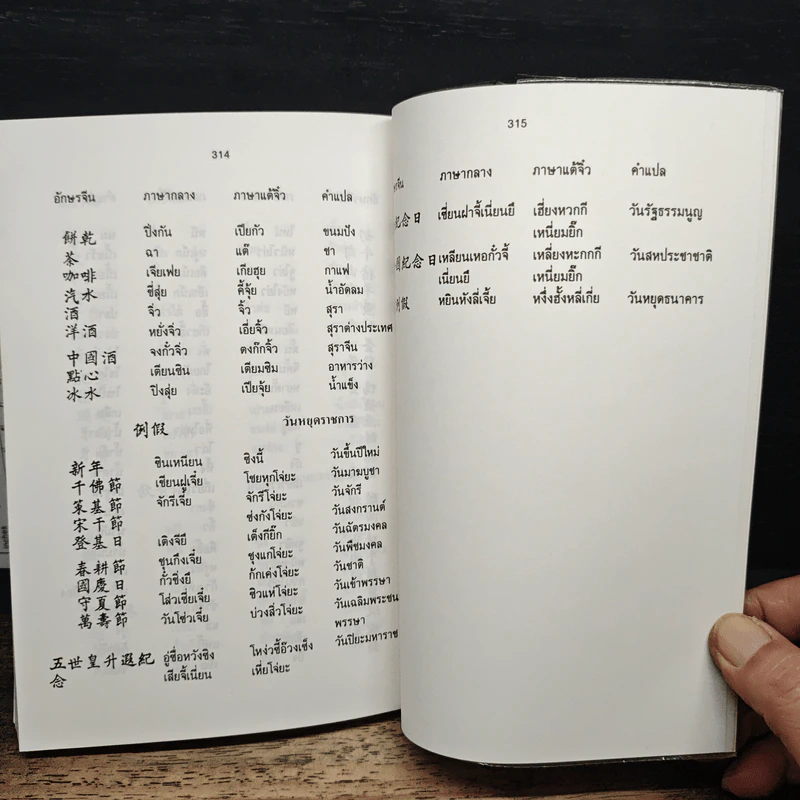 314
อักษรจีน ภาษากลาง ภาษาแต้จิ๋ว คำแปล
餅乾 ปิ่งกัน เปียกัว ขนมปัง
茶 ฉา แต๊ ชา
咖啡 เจียเฟย เกียฮุย กาแฟ
汽水 ชี่สุ่ย คี้จุ้ย น้ำอัดลม
酒 จิ่ว จิ้ว สุรา
洋酒 หยั่งจิ่ว เอี่ยจิ้ว สุราต่างประเทศ
中國酒 จงกั๋วจิ่ว ตงก๊กจิ้ว สุราจีน
點心 เตียนซิน เตียมซิม อาหารว่าง
冰水 ปิงสุ่ย เปียจุ้ย น้ำแข็ง
例假 วันหยุดราชการ
新年 ซินเหนียน ซิงนี้ วันขึ้นปีใหม่
千佛節 เชียนฝูเจี๋ย โชยหุกโจ่ยะ วันมาฆบูชา
策基節 จักรีเจี๋ย จักรีโจ่ยะ วันจักรี
宋干節 ซ่งกังโจ่ยะ วันสงกรานต์
登基日 เติงจียี เต็งกียิ๊ก วันฉัตรมงคล
春耕節 ชุนกึงเจี๋ย ชุงแกโจ่ยะ วันพืชมงคล
國慶日 กั๋วชิ่งยี ก๊กเค่งโจ่ยะ วันชาติ
守夏節 โส่วเซี่ยเจี๋ย ซิวแห่โจ่ยะ วันเข้าพรรษา
萬壽節 วั่นโซ่วเจี๋ย บ่วงสิ่วโจ่ยะ วันเฉลิมพระชน
พรรษา
五世皇升遐紀 อู่ซื่อหวังซิง โหง่วซี้อ๊วงเซ็ง วันปิยะมหาราช
念 เสียจี้เนี่ยน เหี่ยโจ่ยะ
315
รจีน ภาษากลาง ภาษาแต้จิ๋ว คำแปล
紀念日 เซี่ยนฝาจี้เนี่ยนยี เฮี่ยงหวกกี วันรัฐธรรมนูญ
เหนี่ยมยิ๊ก
國紀念日 เหลียนเหอกั๋วจี้ เหลี่ยงหะกกกี วันสหประชาชาติ
เนี่ยนยี เหนี่ยมยิ๊ก
例假 หยินหังลี่เจี้ย หงึ่งฮั้งหลี่เกี่ย วันหยุดธนาคาร